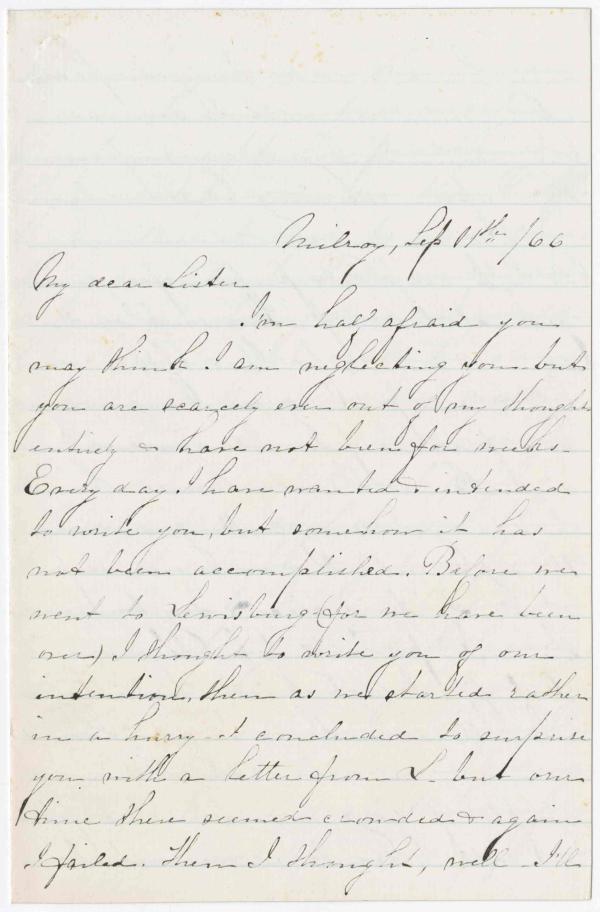 Milroy, Sep 11th /66
My dear Sister
I'm half afraid you
may think I am neglecting you but
you are scarcely ever out of my thoughts
entirely & have not been for weeks-
Every day I have wanted & intended
to write you, but somehow it has
not been accomplished. Before we
went to Lewisburg (for we have been
over) I thought to write you of our
intention, then as we started rather
in a hurry - I concluded to surprise
you with a letter from L- but our
time there seemed crowded & again
I failed. Then I thought, well - I'll